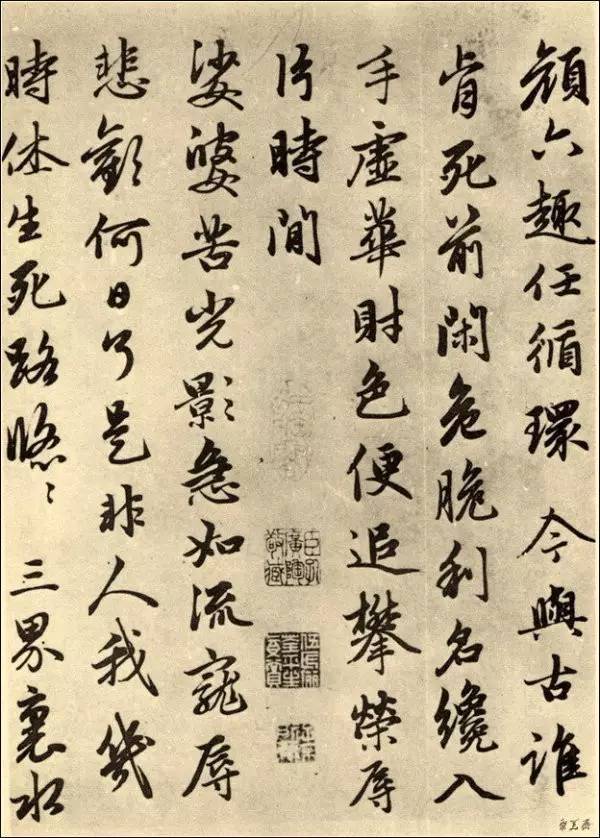 六趣任循環 今與古誰
肯死前閑危脆利名纔入
手虛華財色便追攀榮辱
片時間
娑婆苦光影急如流寵辱
悲歡何日了是非人我幾
時休生死路悠〻 三界裏水